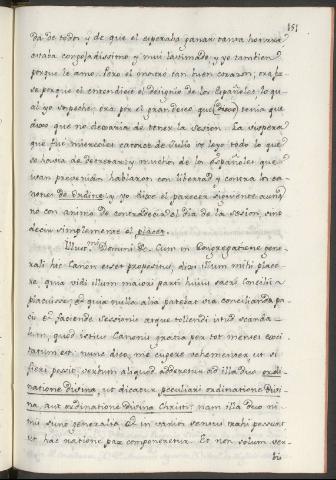 151
da de todos y de que el esperaba ganar tanta honrra
estaba congojadissimo, y mui lastimado, y yo tambien
porque le amo. Pero el mostro tan buen corazon; ora fue-
se porque el entendiese el designio de los Españoles lo qu-
al yo sospeche; ora por el gran deseo que (Dios) tenia que
dixo que no dexaria de tener la Sesion. La vispera
que fue miercoles catorce de Julio se leyo todo lo que
se havia de decretar, y muchos de los Españoles que
van prevenidos hablaron con libertad y contra los ca-
nones de Ordine, y yo dixe el parecer siguiente aunq
no con animo de contradecir el dia de la sesion, sino
decir simplemente el placet.
Illust.mi Domini &c. Cum in Congregatione gene-
rali hic Canon esset propositus, dixi illum mihi place
re, quia vidi illum maiori parti huius sacri Concilii
placuisse, et quia nulla alia patebat via concilianda pa-
cis et faciende sessionis atque tollendi istud scanda-
lum, quod istius Canonis gratia per tot menses exci
tatum est: nunc dico, me cupere vehementer ut si
fieri possit, verbum aliquod adderetur ad illa duo ordi-
natione Divina, ut dicatur peculiari ordinatione Divi-
na, aut ordinatione Divina Christi: nam illa duo ni-
mis sunt generalia et in varios sensus trahi possunt
ut hac ratione pax componeretur. Et non solum ver-
bis